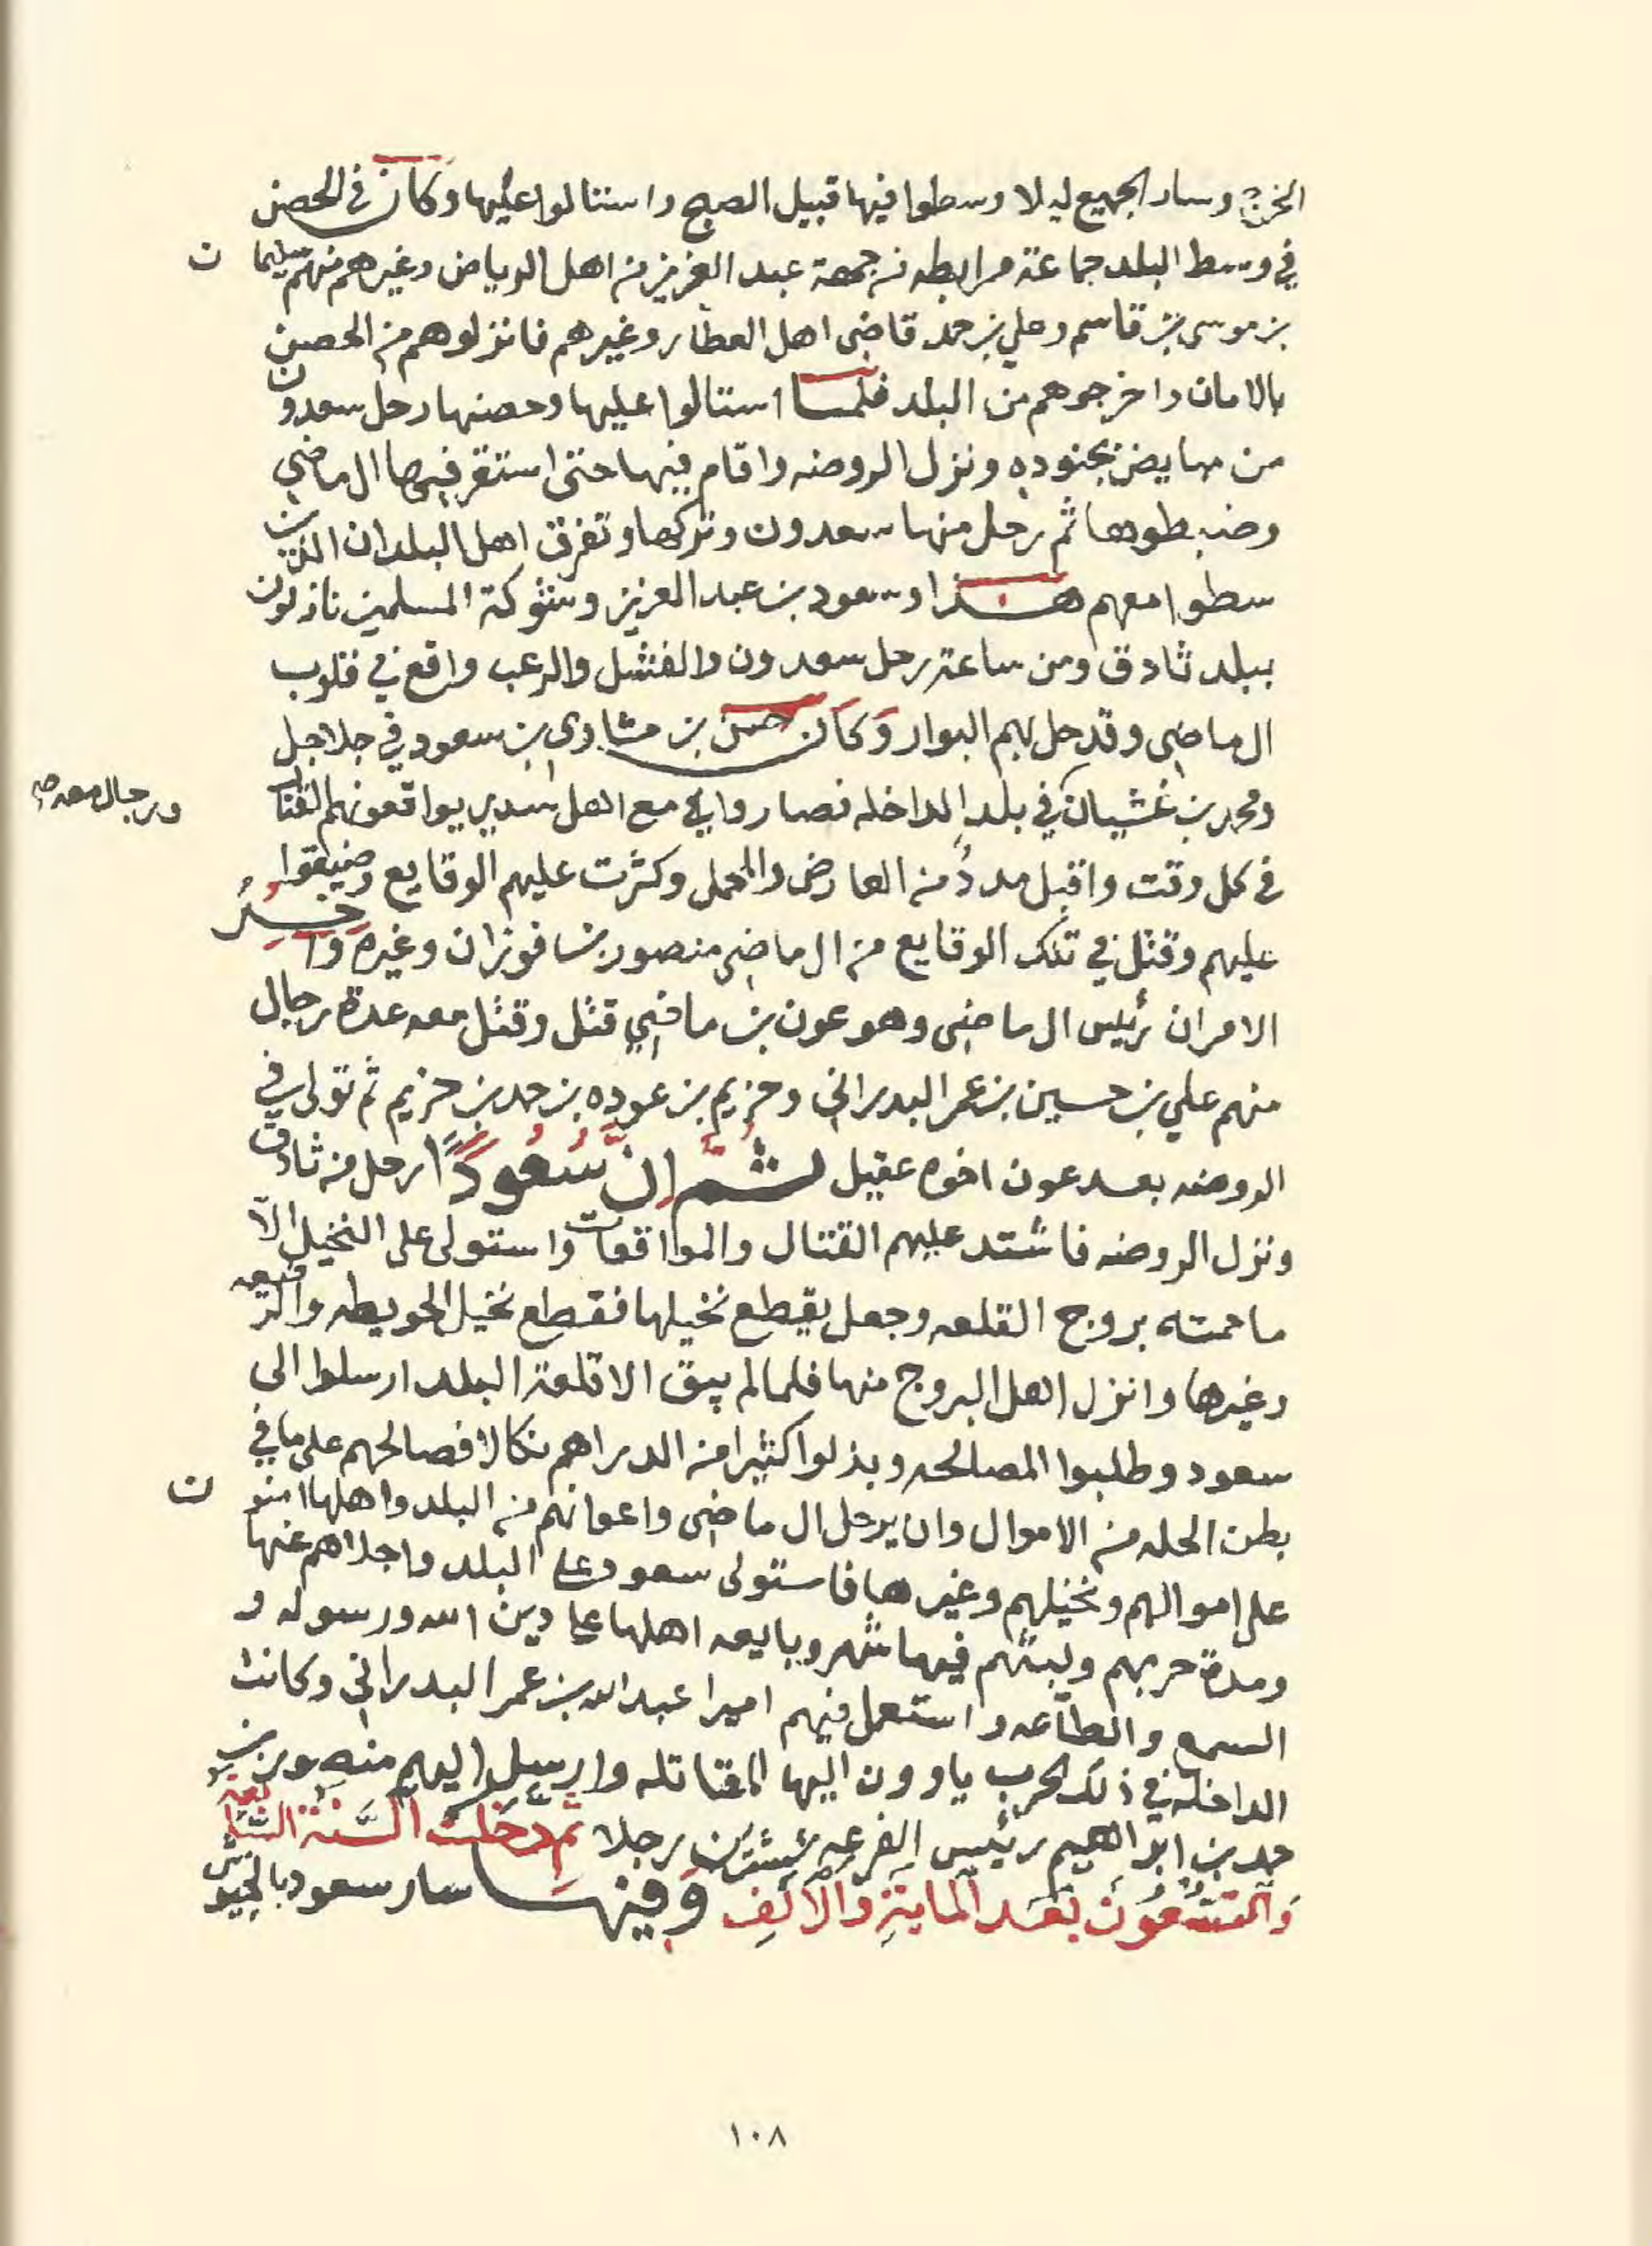 الخرج وسار الجميع ليلا وسطوا فيها قبيل الصبح واستالوا عليها وكان في الحصن
في وسط البلد جماعة مرابطه من جهة عبد العزيز من اهل الرياض وغيرهم منهم سليمان
بن موسى بن قاسم وعلي بن حمد قاضي اهل العطار وغيرهم فانزلوهم من الحصن
بالامان واخرجوهم من البلد فلما استالوا عليها وحصنها رحل سعدون
من مبايض بجنوده ونزل الروضه واقام فيها حتى استقر فيها ال ماضي
وضبطوها ثم رحل منها سعدون وتركها وتفرق اهل البلدان الذين
سطوا معهم هذا وسعود بن عبد العزيز وشوكة المسلمين نازلون
ببلد ثادق ومن ساعة رحل سعدون والفشل والرعب واقع في قلوب
ال ماضي وقد حل بهم البوار وكان حسن بن مشاري بن سعود في جلاجل
ورجال معه صح
ومحمد بن غشيان في بلد الداخله فصاروا مع اهل سدير يواقعونهم القتال
في كل وقت واقبل مددٌ من العارض والمحمل وكثرت عليهم الوقايع وضيقوا
عليهم وقتل في تلك الوقايع من ال ماضي منصور بن فوزان وغيره واخر
الامر ان رئيس ال ماضي وهو عون بن ماضي قتل وقتل معه عدة رجال
منهم علي بن حسين بن عمر البدراني وخزيم بن عوده بن حمد بن خزيم ثم تولى في
الروضه بعد عون اخوه عقيل ثُمَّ اِنَّ سُعُودًا رحل من ثادق
ونزل الروضه فاشتد عليهم القتال والمواقعات واستولى على النخيل الا
ما حمته بروج القلعه وجعل يقطع نخيلها فقطع نخيل الحويطه والرفيعه
وغيرها وانزل اهل البروج منها فلما لم يبق الا قلعة البلد ارسلوا الى
سعود وطلبوا المصالحه وبذلوا كثيرا من الدراهم نكالا فصالحهم على ما في
بطن الحله من الاموال وان يرحل ال ماضي واعوانهم من البلد واهلها امنون
على اموالهم ونخيلهم وغيرها فاستولى سعود على البلد واجلاهم عنها
ومدة حربهم ولبثهم فيها شهر وبايعه اهلها على دين الله ورسوله و
السمع والطاعه واستعمل فيهم اميرا عبد الله بن عمر البدراني وكانت
الداخله في ذلك الحرب ياوون اليها المقاتله وارسل اليهم منصور بن
حمد بن ابراهيم رئيس الفرعه بستين رجلا ثم دخلت السَّنة التاسعة
وَالتسعُونَ بَعد المايَةِ وَالاَلفِ وَفِيهَا سار سعود بالجيوش
١٠٨